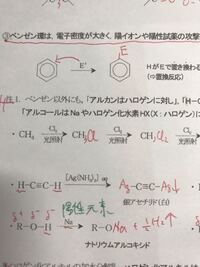 ③ベンゼン環は、電子密度が大きく、陽イオンや陽性試薬の攻撃
E
E⁺
HがEで置き換わる
(⇨置換反応)
注1. ベンゼン以外にも、「アルカンはハロゲンに対し」、「H-C
「アルコールはNaやハロゲン化水素HX(X:ハロゲン)に
・CH₄ Cl₂ 光照射 CH₃Cl Cl₂ 光照射 CH₂Cl₂ Cl₂ 光照射
・H-C≡C-H [Ag(NH₃)₂]⁺ aq Ag-C≡C-Ag↓
(銀アセチリド(白)
δ⁺ δ⁻ δ⁻ 陽性元素
・R-O-H Na R-ONa + ½H₂↑
ナトリウムアルコキシド